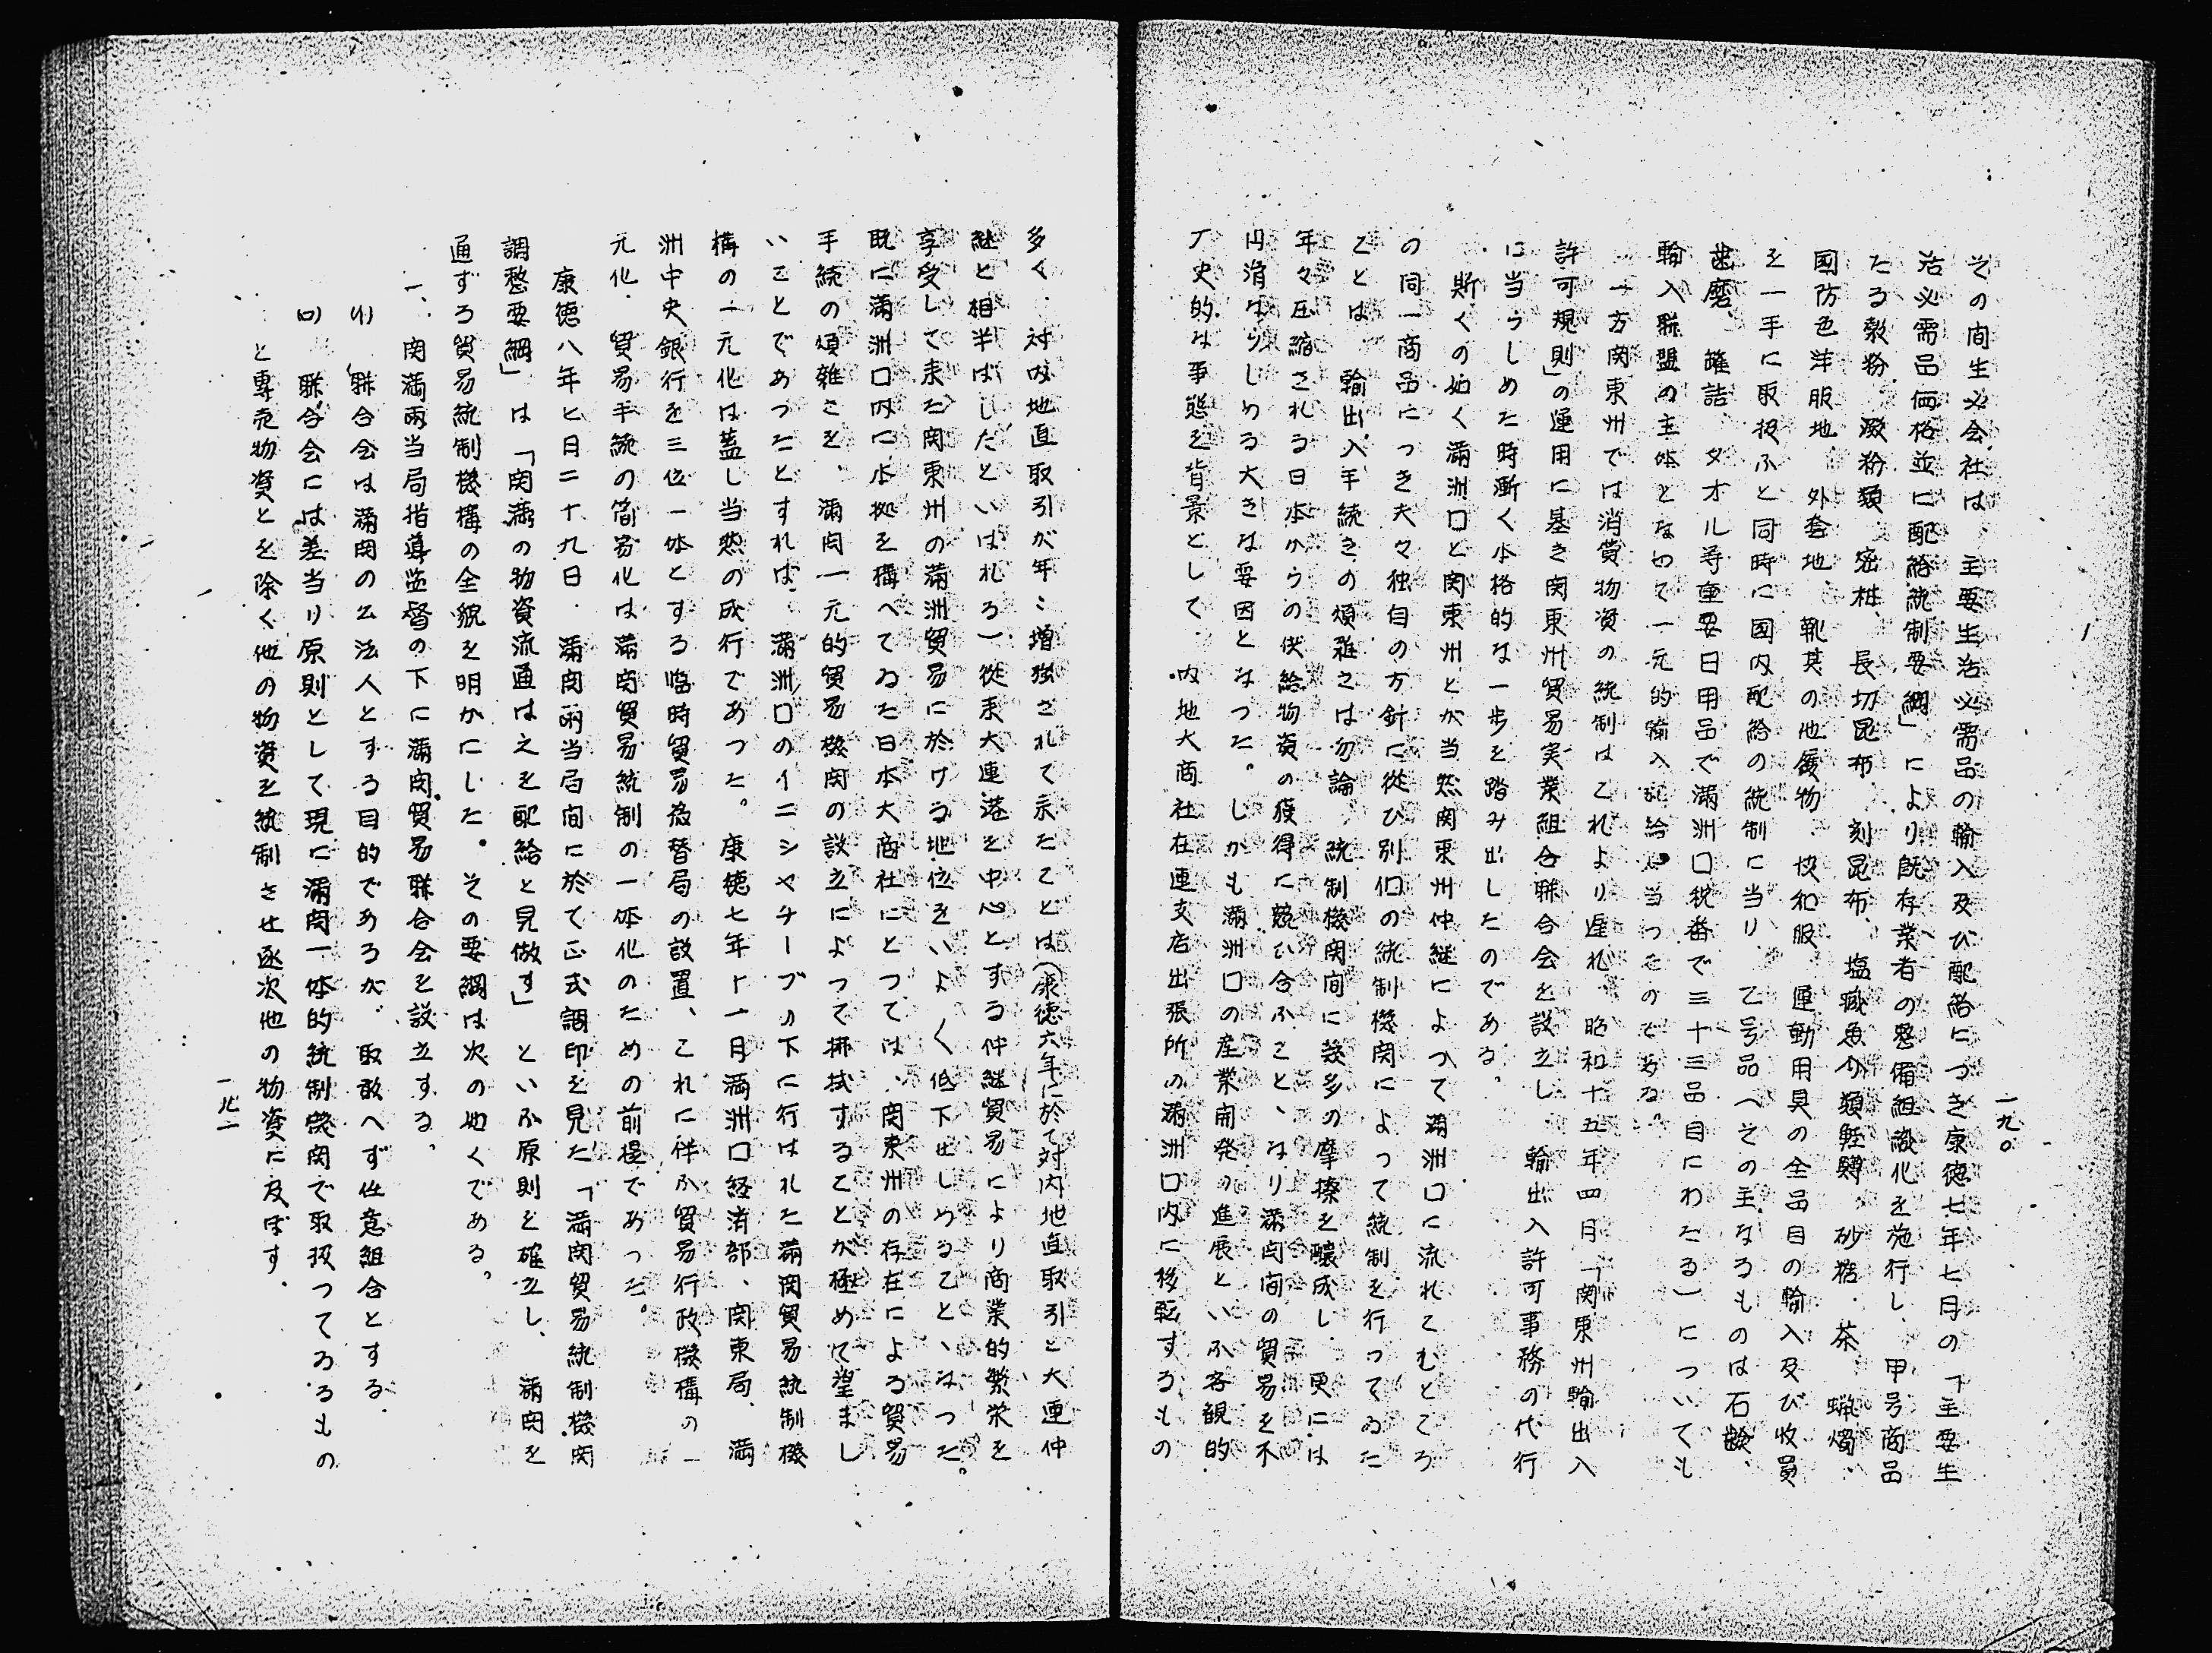 一九〇
その間生必会社は、主要生活必需品の輸入及び配給につき康徳七年七月の「主要生
活必需品価格並に配給統制要綱」により既存業者の整備組織化を施行し、甲号商品
たる穀粉、澱粉類、密柑、長切昆布、刻昆布、塩蔵魚介類鮭鱒、砂糖、茶、蝋燭、
国防色洋服地、外套地、靴其の他履物、協和服、運動用具の全品目の輸入及び收買
を一手に取扱ふと同時に国内配給の統制に当り、乙号品へその主なるものは石鹼、
歯磨、罐詰、タオル等重要日用品で満洲口税番で三十三品目にわたる)についても
輸入聯盟の主体となつて一元的輸入配給に当つたのである。
一方関東州では消費物資の統制はこれより遅れ、昭和十五年四月「関東州輸出入
許可規則」の運用に基き関東州貿易実業組合聯合会を設立し、輸出入許可事務の代行
に当らしめた時漸く本格的な一歩を踏み出したのである。
斯くの如く満洲口と関東州とが当然関東州仲継によつて満洲口に流れこむところ
の同一商品につき夫々独自の方針に従ひ別個の統制機関によつて統制を行つてゐた
ことは、輸出入手続きの煩雑さは勿論、統制機関間に幾多の摩擦を醸成し、更には
年々圧縮される日本からの供給物資の獲得に競ひ合ふこと、なり満関間の貿易を不
円滑ならしめる大きな要因となつた。しかも満洲口の産業開発の進展といふ客観的
丆史的な事態を背景として、内地大商社在連支店出張所の満洲口内に移転するもの
多く、対内地直取引が年々増強されて来たことは(康徳六年に於て対内地直取引と大連仲
継と相半ばしたといはれる)従来大連港を中心とする仲継貿易により商業的繁栄を
享受して来た関東州の満洲貿易に於ける地位をいよ〱低下せしめることゝなつた。
既に満洲口内に本拠を構へてゐた日本大商社にとつては、関東州の存在による貿易
手続の煩雑さを、満関一元的貿易機関の設立によつて拂拭することが極めて望まし
いことであつたとすれば、満洲口のイニシヤチーブの下に行はれた満関貿易統制機
構の一元化は蓋し当然の成行であつた。康徳七年十一月満洲口経済部、関東局、満
洲中央銀行を三位一体とする臨時貿易為替局の設置、これに伴ふ貿易行政機構の一
元化、貿易手続の簡易化は満関貿易統制の一体化のための前提であつた。
康徳八年七月二十九日、満関両当局間に於て正式調印を見た「満関貿易統制機関
調整要綱」は「関満の物資流通は之を配給と見做す」といふ原則を確立し、満関を
通ずる貿易統制機構の全貌を明かにした。その要綱は次の如くである。
一、関満両当局指導監督の下に満関貿易聯合会を設立する。
(イ)聯合会は満関の公法人とする目的であるが、取敢へず任意組合とする。
(ロ)聯合会には差当り原則として現に満関一体的統制機関で取扱つてゐるもの
と専売物資とを除く他の物資を統制させ逐次他の物資に及ぼす。
一九一